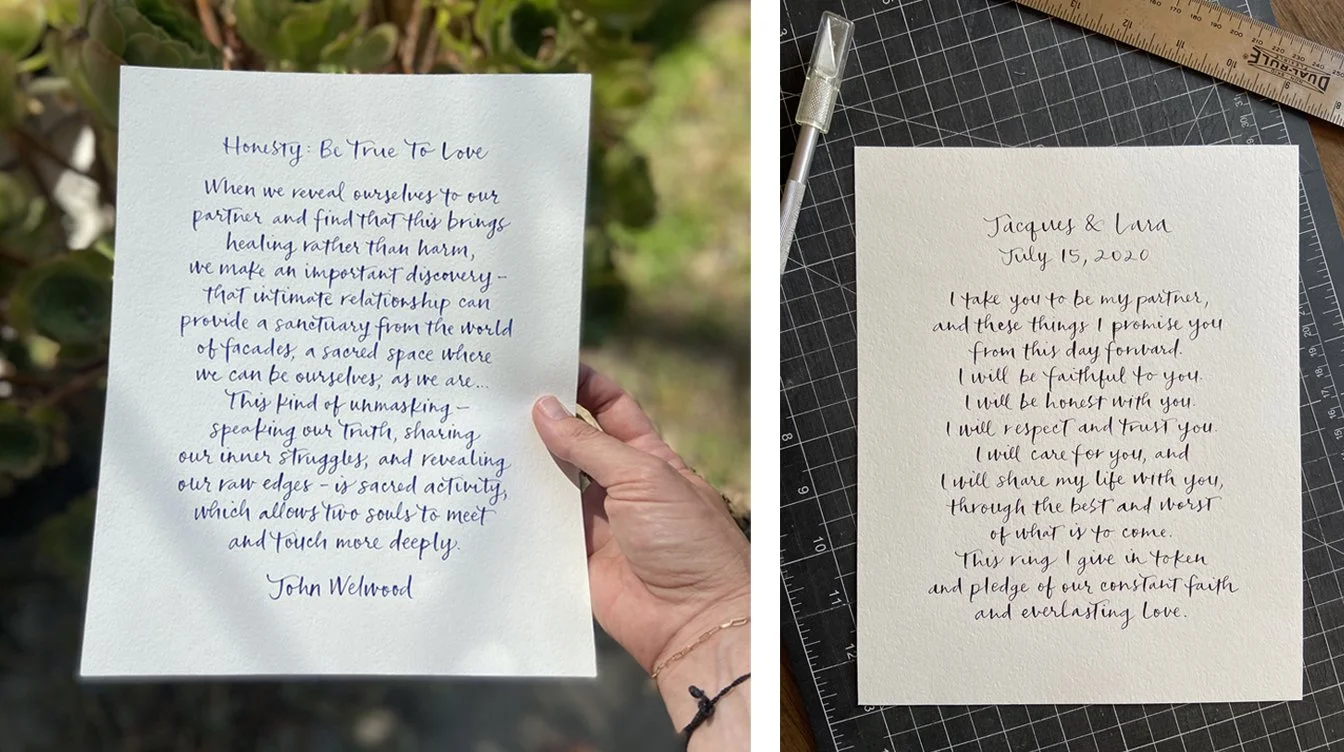 Honesty: Be True To Love
When we reveal ourselves to our
partner and find that this brings
healing rather than harm,
we make an important discovery –
that intimate relationship can
provide a sanctuary from the world
of facades, a sacred space where
we can be ourselves, as we are...
This kind of unmasking –
speaking our truth, sharing
our inner struggles, and revealing
our raw edges – is sacred activity,
which allows two souls to meet
and touch more deeply.
John Welwood
Jacques & Lara
July 15, 2020
I take you to be my partner,
and these things I promise you
from this day forward.
I will be faithful to you.
I will be honest with you.
I will respect and trust you.
I will care for you, and
I will share my life with you,
through the best and worst
of what is to come.
This ring I give in token
and pledge of our constant faith
and everlasting Love.
DUAL-RULE
8
9
10
11
12